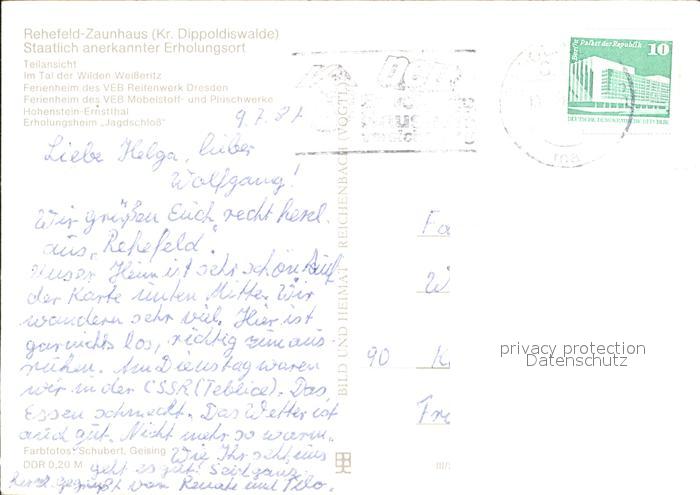 Rehefeld-Zaunhaus (Kr. Dippoldiswalde)
Staatlich anerkannter Erholungsort
Teilansicht
Im Tal der Wilden Weißeritz
Ferienheim des VEB Reifenwerk Dresden
Ferienheim des VEB Möbelstoff- und Plüschwerke
Hohenstein-Ernstthal
Erholungsheim „Jagdschloß"
9.7.81
Liebe Helga, lieber
Wolfgang!
Wir grüßen Euch recht herzl.
aus „Rehefeld".
Unser Heim ist sehr schön. Auf
der Karte unten Mitte. Wir
wandern sehr viel. Hier ist
gar nichts los, richtig zum aus-
ruhen. Am Dienstag waren
wir in der CSSR (Teblice). Das
Essen schmeckt. Das Wetter ist
auch gut. Nicht mehr so warm.
Wie Ihr seht, uns
geht es gut. Seid ganz
herzl. gegrüßt von Renate und Tilo.
Farbfotos: Schubert, Geising
DDR 0,20 M
BILD UND HEIMAT REICHENBACH (VOGTL)
III/
Berlin, Palast der Republik
10
DEUTSCHE DEMOKRATISCHE REPUBLIK
Fa
W
90 K
Fre
privacy protection
Datenschutz